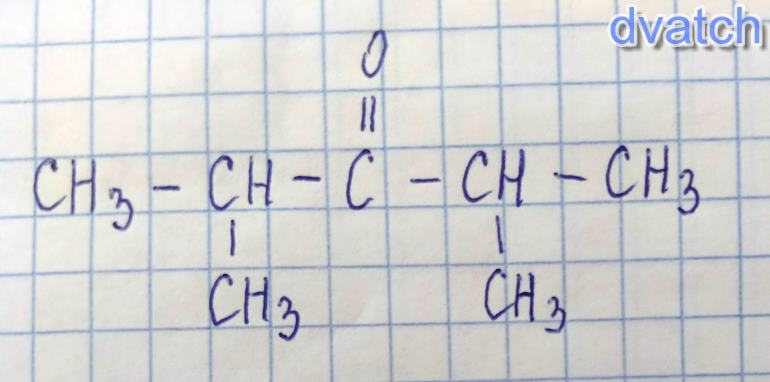 dvatch
O
||
CH3 - CH - C - CH - CH3
| |
CH3 CH3